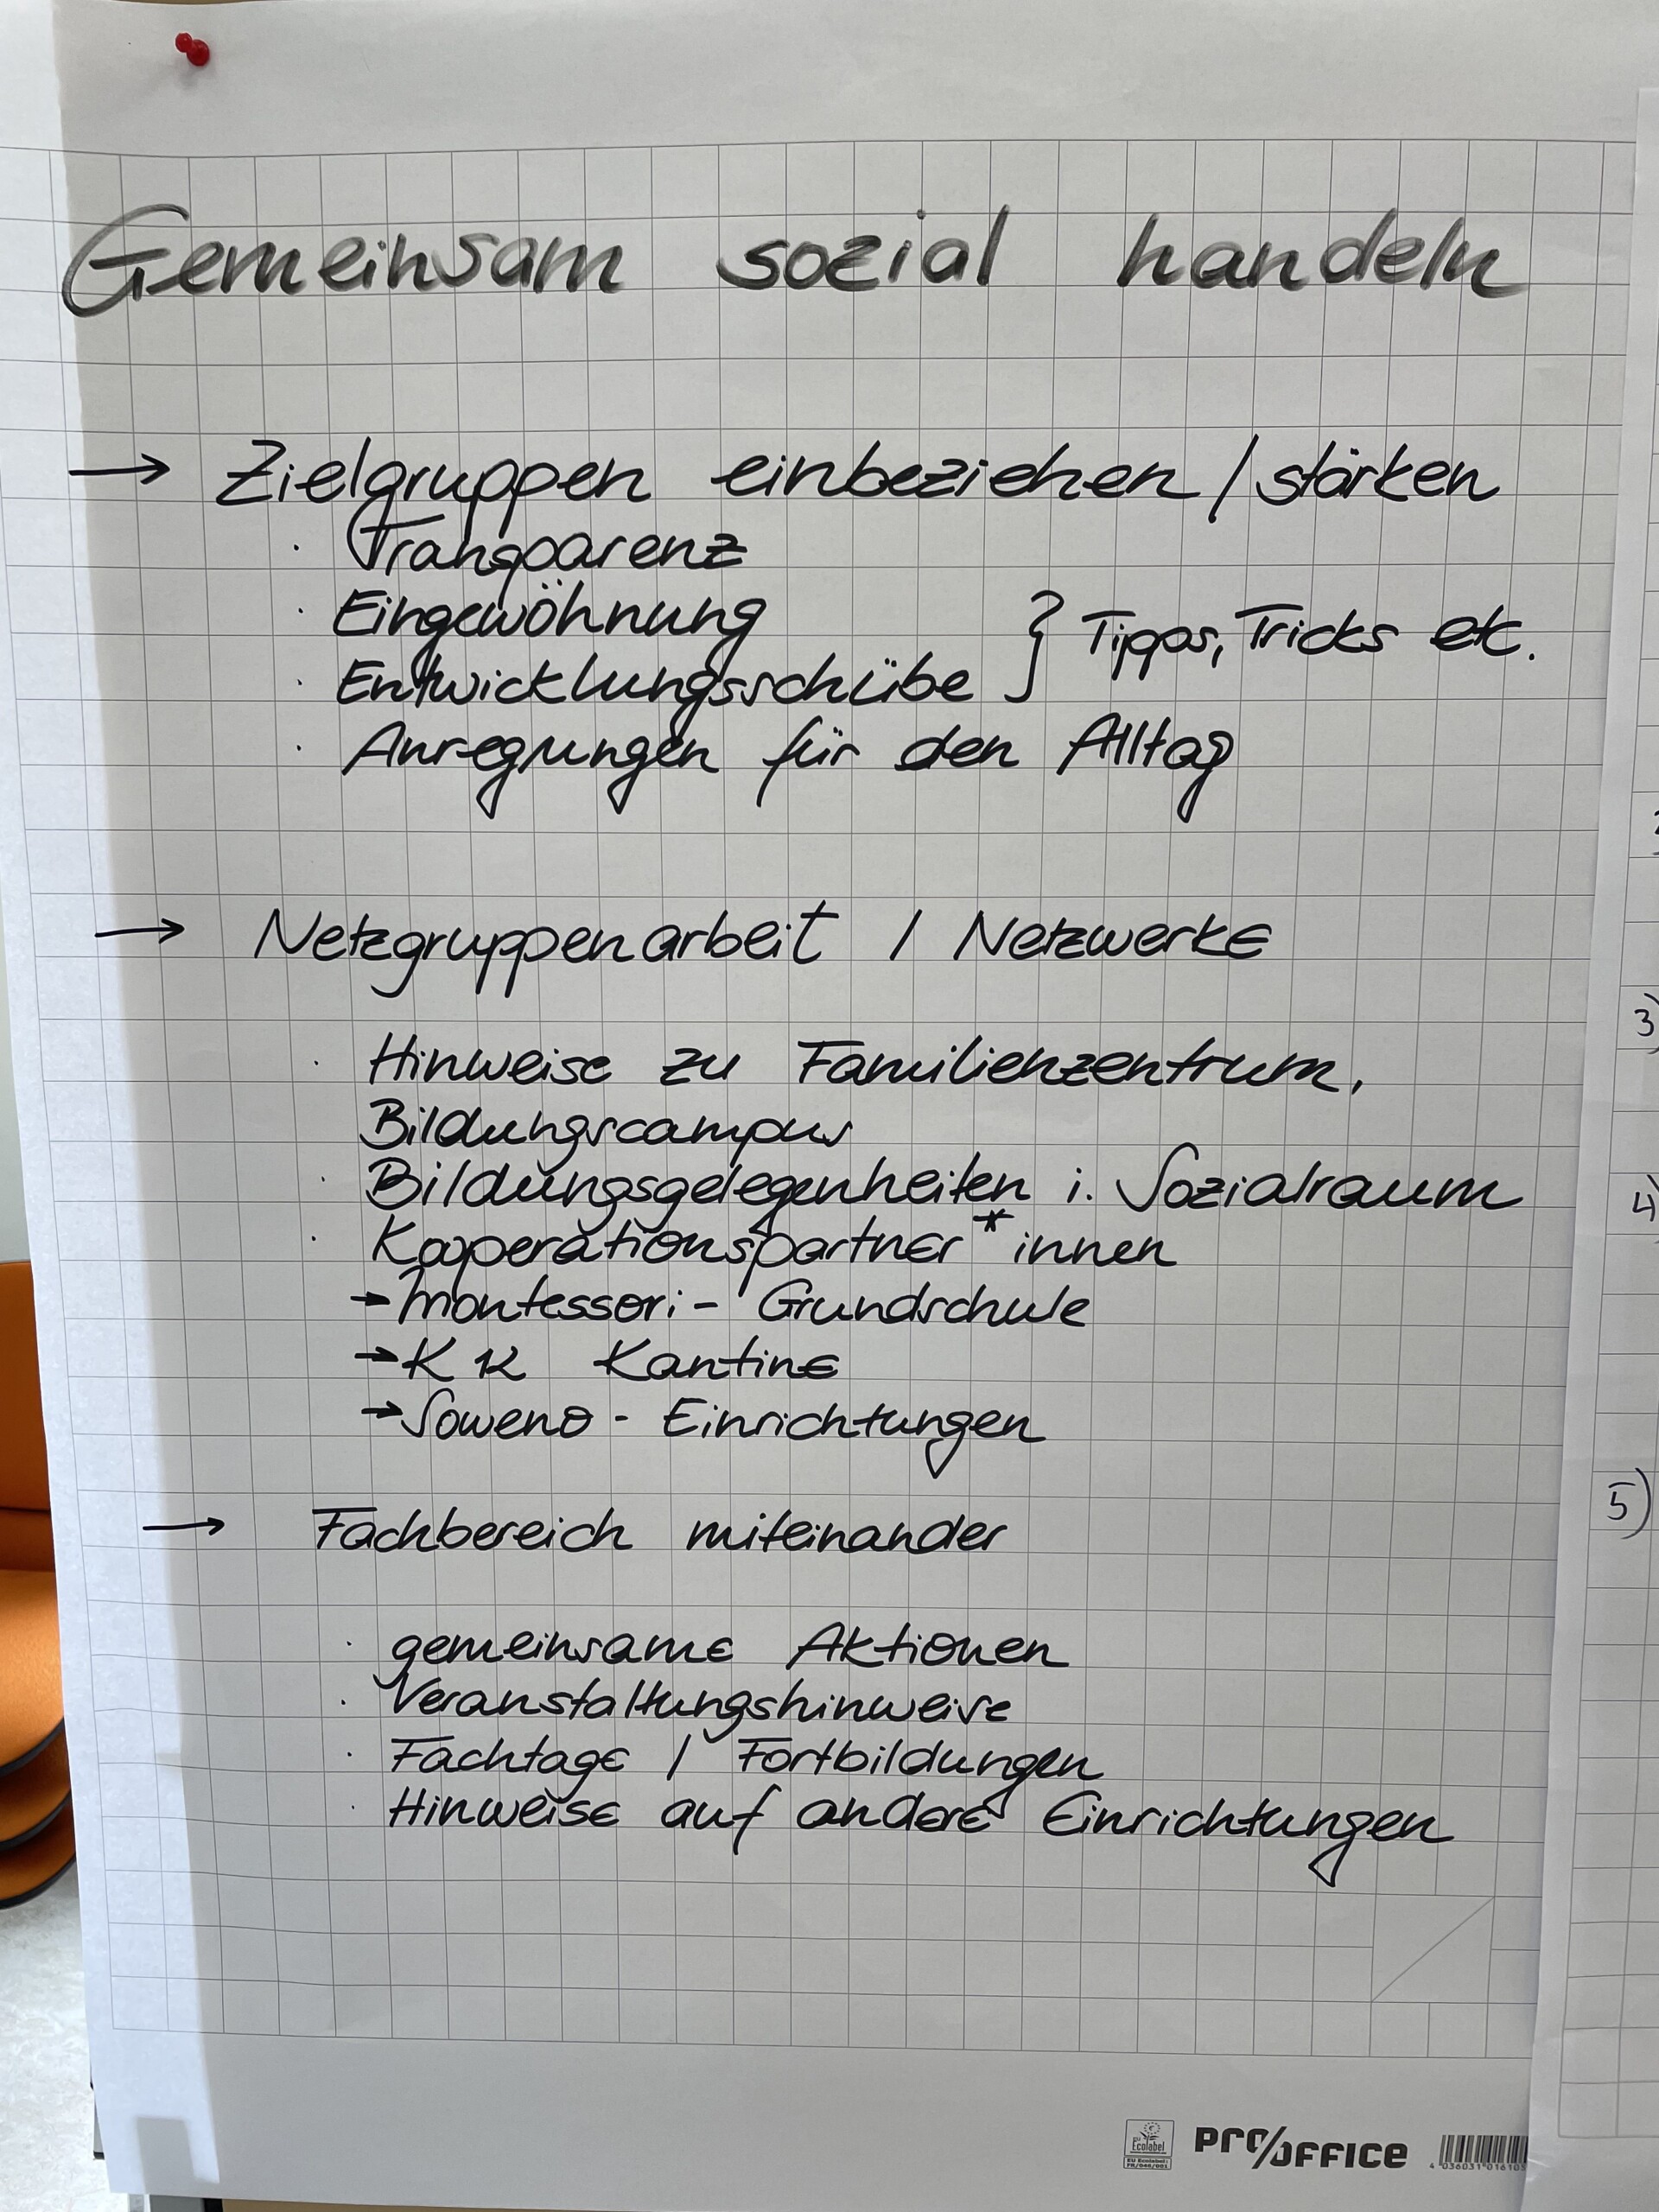 Gemeinsam sozial handeln
→ Zielgruppen einbeziehen / stärken
· Transparenz
· Eingewöhnung
· Entwicklungsschübe } Tipps, Tricks etc.
· Anregungen für den Alltag
→ Netzgruppenarbeit / Netzwerke
· Hinweise zu Familienzentrum,
Bildungscampus
· Bildungsgelegenheiten i. Sozialraum
· Kooperationspartner*innen
→ Montessori - Grundschule
→ K12 Kantine
→ Soweno - Einrichtungen
→ Fachbereich miteinander
· gemeinsame Aktionen
· Veranstaltungshinweise
· Fachtage / Fortbildungen
· Hinweise auf andere Einrichtungen
3)
4)
5)
EU Ecolabel
PRO/OFFICE